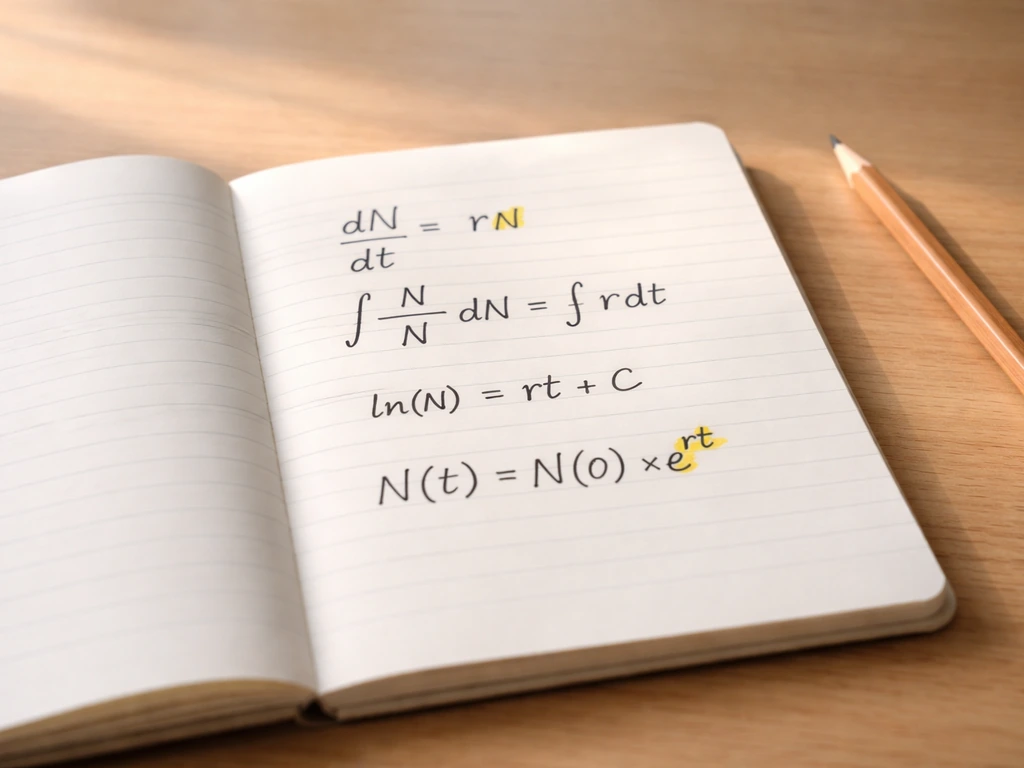 dN/dt = rN
∫ N/N dN = ∫ r dt
ln(N) = rt + C
N(t) = N(0) × e^rt